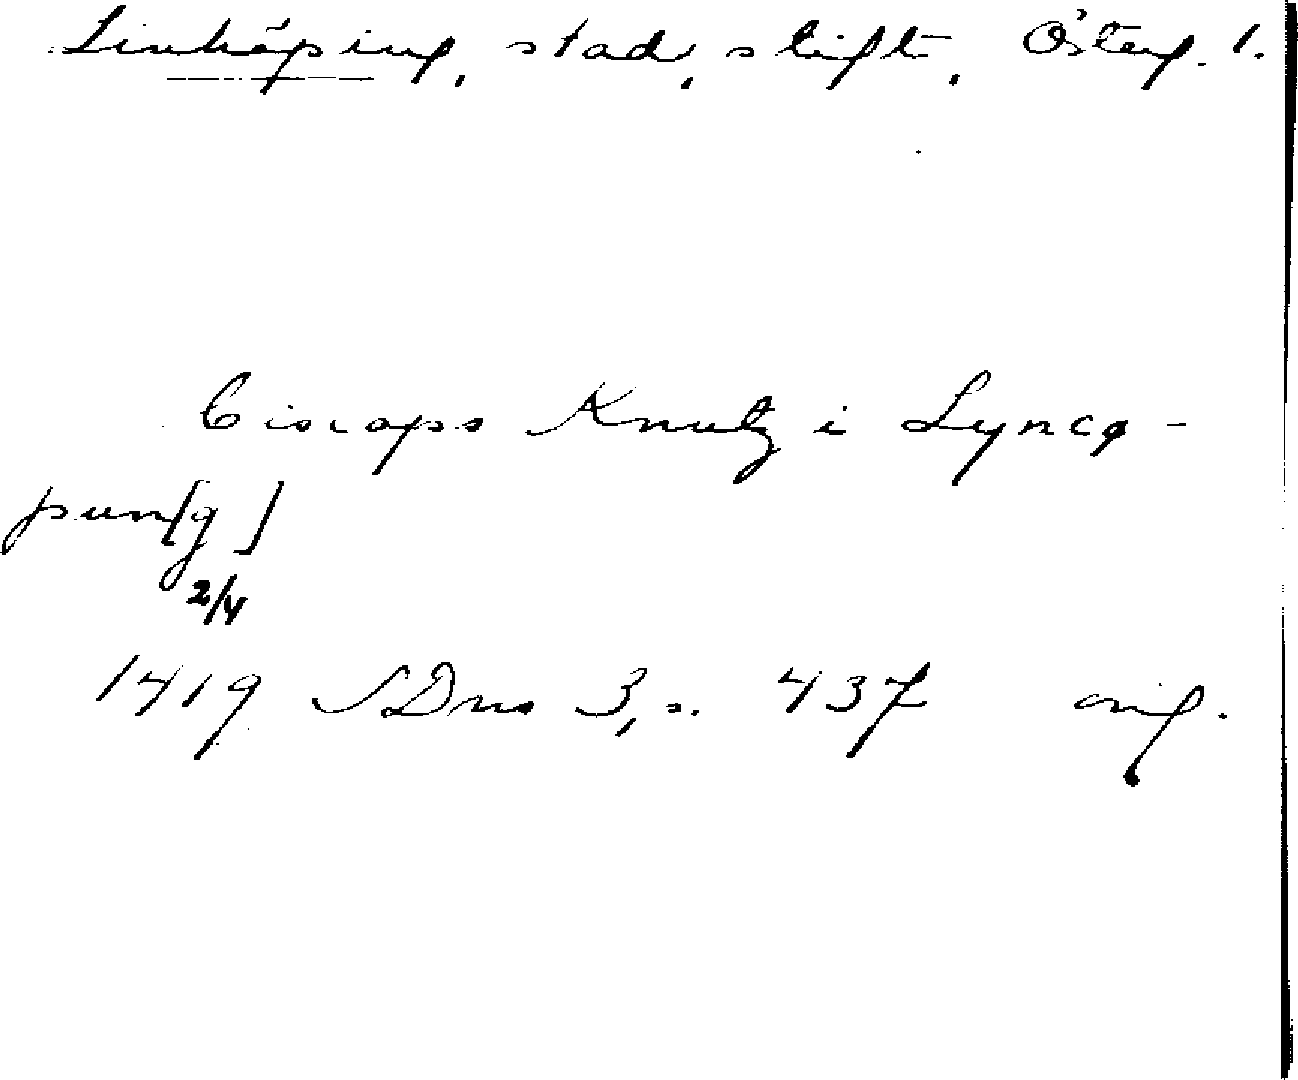 Linköping, stad, stift, Österg. l.
biscops Knutz i Lyncø-
pun[g]
2/4
1419 SDns 3, s. 437 orig.